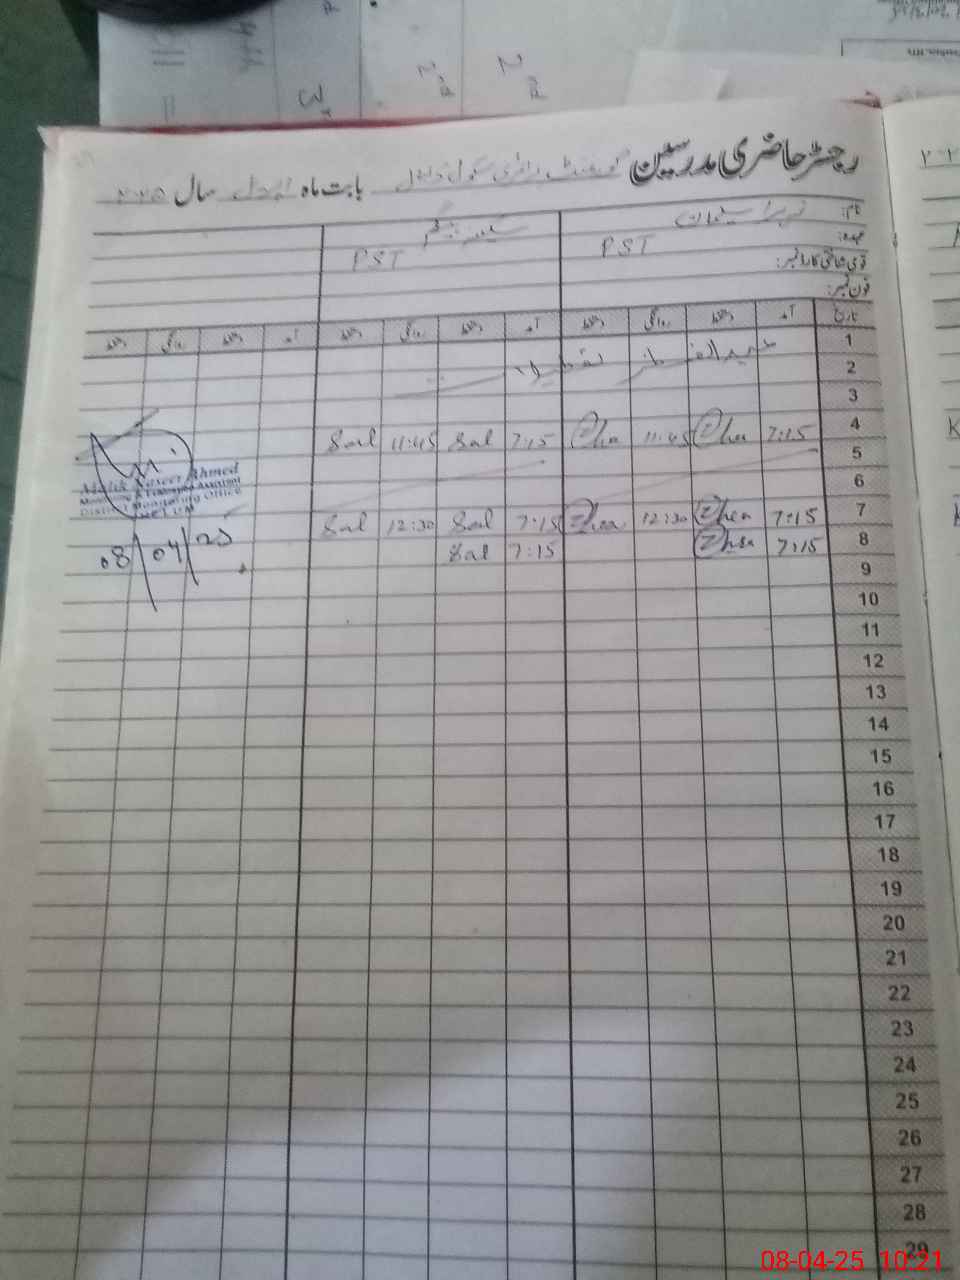 رجسٹر حاضری مدرسین گورنمنٹ پرائمری سکول بابت ماہ اپریل سال ۲۰۲۵
نام:
عہدہ: PST PST
قومی شناختی کارڈ نمبر:
فون نمبر:
تاریخ آمد دستخط روانگی دستخط آمد دستخط روانگی دستخط آمد دستخط روانگی دستخط
1
2 عید الفطر تعطیلات
3
4 7:15 Zhea 11:45 Zhea 7:15 Sal 11:45 Sal
5
6
7 7:15 Zhea 12:30 Zhea 7:15 Sal 12:30 Sal
8 7:15 Zhea 7:15 Sal
Malik Naseer Ahmed
Monitoring & Evaluation Assistant
District Monitoring Office
JHELUM
08/04/25
9
10
11
12
13
14
15
16
17
18
19
20
21
22
23
24
25
26
27
28
29
08-04-25 10:21